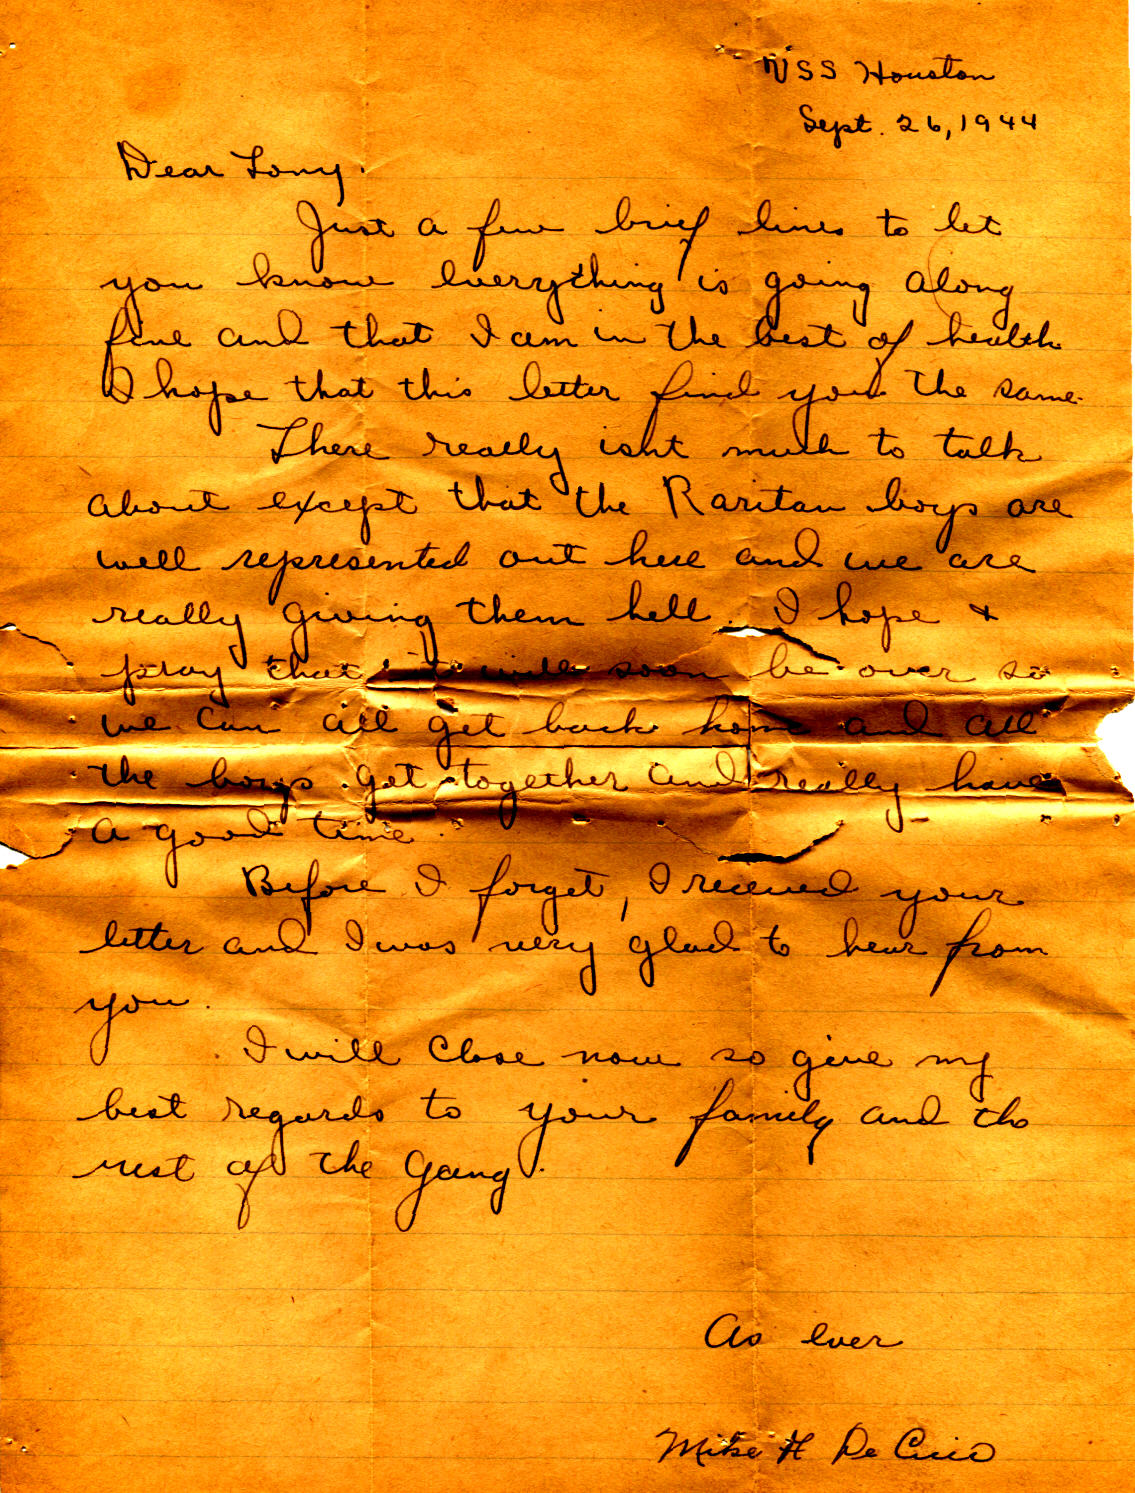 USS Houston
Sept. 26, 1944
Dear Tony.
Just a few brief lines to let
you know everything is going along
fine and that I am in the best of health
I hope that this letter find you the same.
There really isnt much to talk
about except that the Raritan boys are
well represented out here and we are
really giving them hell. I hope &
pray that it will soon be over so
we can all get back home and all
the boys get together and really have
a good time.
Before I forget, I received your
letter and I was very glad to hear from
you.
I will close now so give my
best regards to your family and the
rest of the Gang.
As ever
Mike H De Cicco